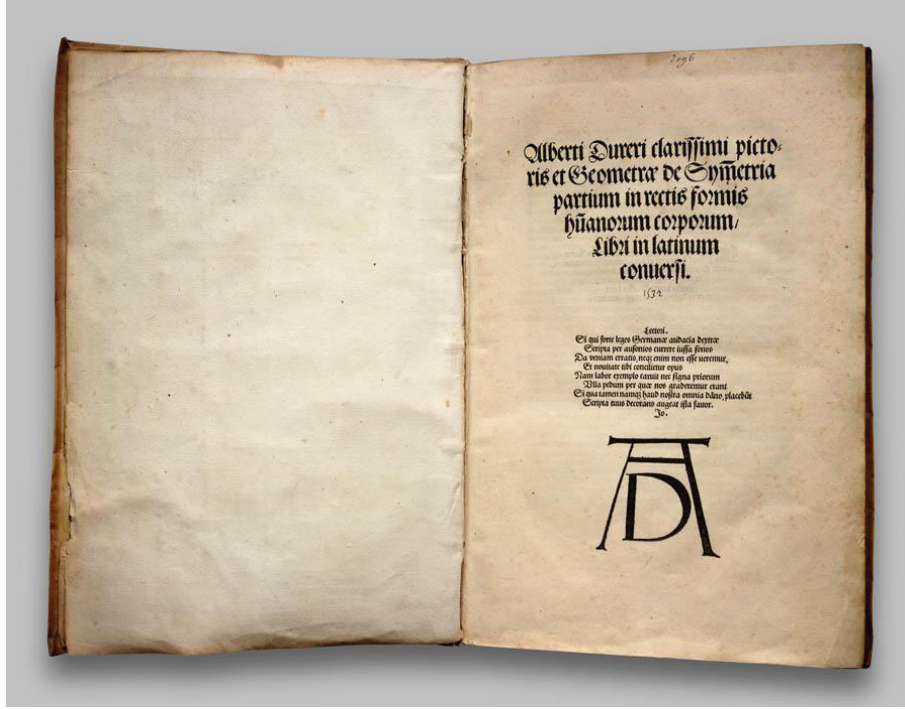 2096
Alberti Dureri clarissimi picto-
ris et Geometrę de Sym̄etria
partium in rectis formis
hūanorum corporum/
Libri in latinum
conuersi.
1532
Lectori.
Si qui forte leges Germanæ audacia dextræ
Scripta per ausonios currere iussa sonos
Da veniam erratis, neq; enim non esse veremur,
Et nouitate tibi concilietur opus
Nam labor exemplo caruit nec signa priorum
Vlla pedum per quæ nos graderemur erant
Si qua tamen namq; haud nostra omnia dāno, placebūt
Scripta tuus decorans augeat ista fauor.
Jo.
AD